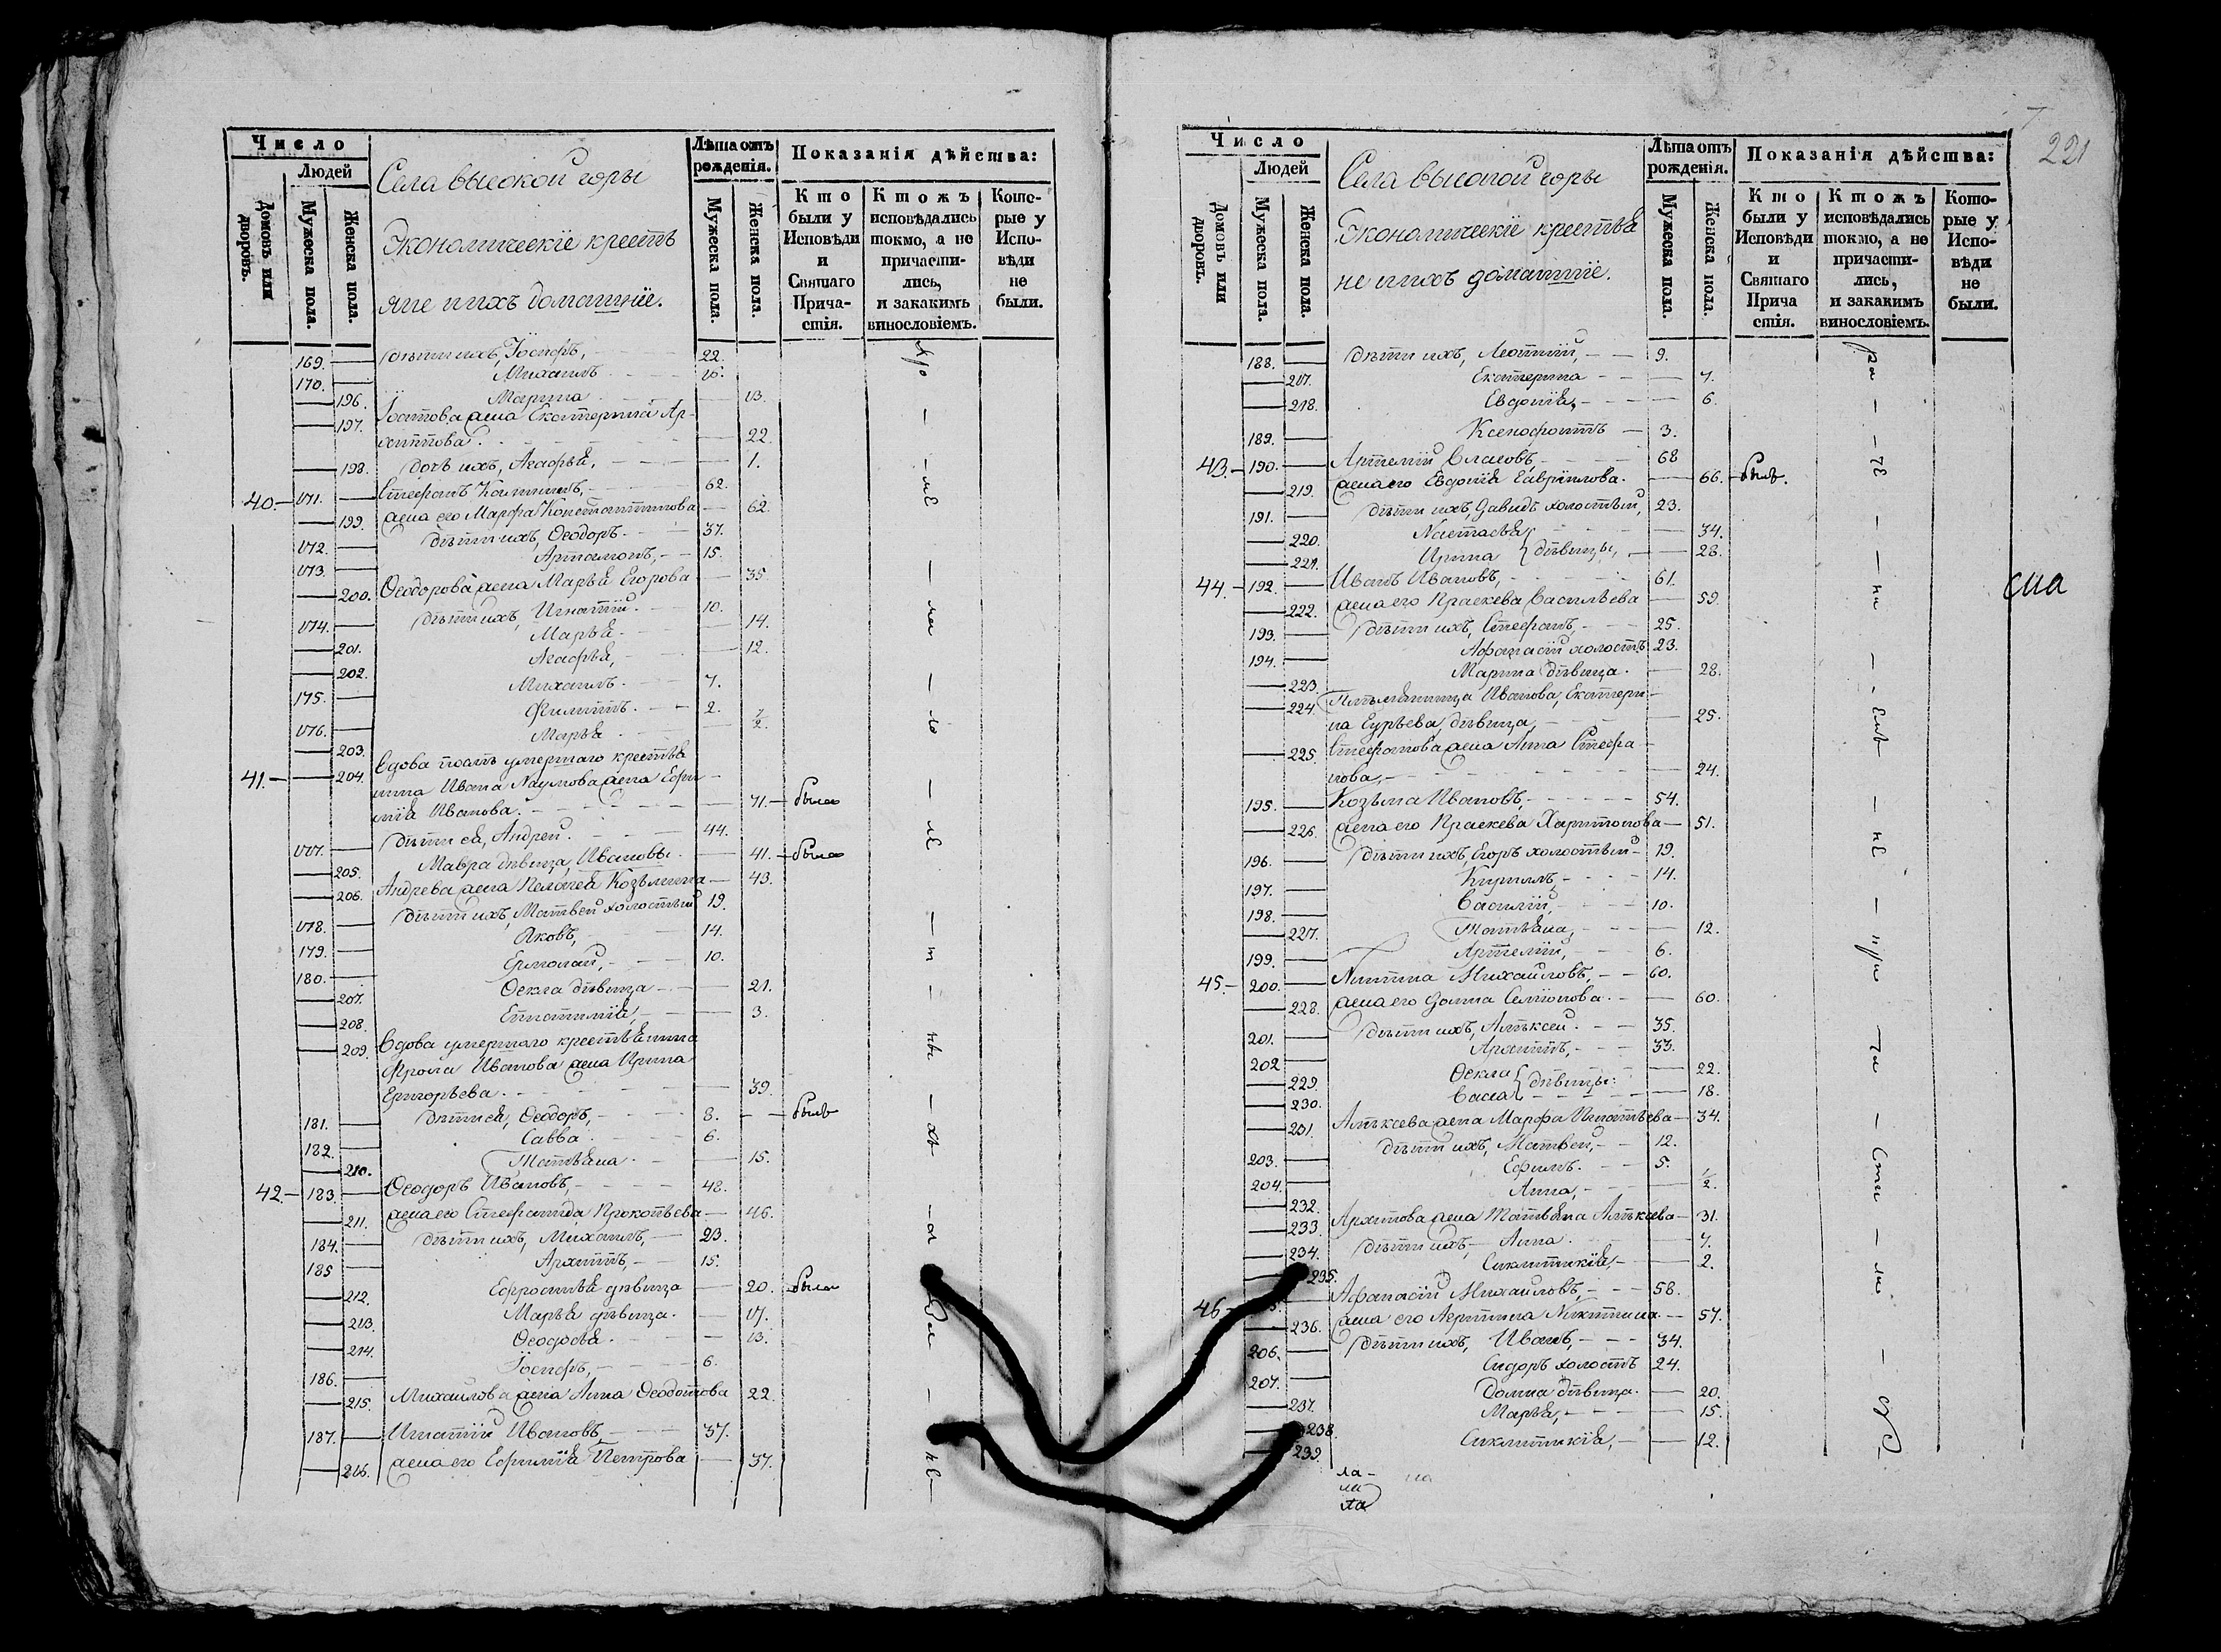 Число
Людей
Домовъ или дворовъ.
Мужеска пола.
Женска пола.
Села высокой горы
Экономическїе кресть
яне и ихъ домашнїе.
Лѣта отъ рожденїя.
Мужеска пола.
Женска пола.
Показанїя дѣйства:
Кто были у Исповѣди и Святаго Причастїя.
Ктожъ исповѣдались токмо, а не причастились, и закакимъ винословїемъ.
Которые у Исповѣди не были.
169. — дѣти ихъ, Іосифъ, 22.
170. — Михаилъ
— 196. Марина 13.
— 197. Екатерина Ар-
хиппова. — 22.
— 198. дочь ихъ, Агафья, — 1.
40.— 171. — Стефанъ 62.
— 199. жена его Марфа Константинова — 62.
172. — дѣти ихъ, Ѳеодоръ. 37.
173. — Артамонъ, 15.
— 200. Ѳеодорова жена Марья Егорова — 35.
174. — дѣти ихъ, Игнатїй. 10.
— 201. Марья. — 14.
— 202. Агафья, — 12.
175. — Михаилъ. 7.
176. — Филиппъ. 2.
— 203. Марья — 1/2.
41.— — 204. Вдова умершаго крестья
нина Ивана Наумова жена Ефи-
мїя Иванова. — 71. — была
177. — дѣти ея, Андрей. 44.
— 205. Мавра дѣвица, Ивановы. — 41. — была
— 206. Андреева жена Пелагея Козьмина — 43.
178. — дѣти ихъ, Матвей холостый 19.
179. — Яковъ, 14.
180. — Ермолай, 10.
— 207. Ѳекла дѣвица — 21.
— 208. — 3.
— 209. Вдова умершаго крестьянина
Фрола Иванова жена Ирина
Григорьева. — 39.
181. — дѣти ея, Ѳеодоръ, 8. — — былъ
182. — Савва. 6.
— 210. Татьяна. — 15.
42.— 183. — Ѳеодоръ Ивановъ, 48.
— 211. жена его Стефанида Прокопьева — 46.
184. — дѣти ихъ, Михаилъ, 23.
185 — Архиппъ, 15.
— 212. Ефросинья дѣвица — 20. была
— 213. Марья дѣвица. — 17.
— 214. Ѳеодосья. — 13.
186. — Іосифъ, 6.
— 215. Михаилова жена Анна Ѳеодотова 22.
187. — Игнатїй Ивановъ, 37.
— 216. жена его Ефимїя Петрова — 37.
221
Число
Людей
Домовъ или дворовъ.
Мужеска пола.
Женска пола.
Села высокой горы
Экономическїе крестья
не и ихъ домашнїе.
Лѣта отъ рожденїя.
Мужеска пола.
Женска пола.
Показанїя дѣйства:
Кто были у Исповѣди и Святаго Причастїя.
Ктожъ исповѣдались токмо, а не причастились, и закакимъ винословїемъ.
Которые у Исповѣди не были.
188. — дѣти ихъ, Леонтїй, — 9.
— 217. Екатерина — 7.
— 218. Евдокїя, — 6.
189. — Ксенофонтъ — 3.
43.— 190. — Артемїй Власовъ, 68
— 219. жена его Евдокїя Гаврїилова. — 66. — былъ.
191. — дѣти ихъ, Давидъ холостый, 23.
— 220. Настасья — 34.
— 221. Ирина } дѣвицы, — 28.
44.— 192. — Иванъ Ивановъ, 61.
— 222. жена его Праскева Васильева — 59.
193. — дѣти ихъ, Стефанъ, 25.
194. — Афанасїй холостъ 23.
— 223. Марина дѣвица. — 28.
— 224. Племянница Иванова, Екатери-
на Гурьева дѣвица, — 25.
— 225. Стефанова жена Анна Стефа-
нова, — 24.
195. — Козьма Ивановъ, 54.
— 226. жена его Праскева Харитонова — 51.
196. — дѣти ихъ, Егоръ холостый — 19.
197. — Кирилъ, 14.
198. — Василїй, 10.
— 227. Татьяна, — 12.
199. — Артемїй, 6.
45.— 200. — Никита Михайловъ, — 60.
— 228. жена его Домна Семїонова. — 60.
201. — дѣти ихъ, Алѣксей. — 35.
202 — Архиппъ, 33.
— 229. Ѳекла — 22.
— 230. Васса } дѣвицы: — 18.
— 231. Алѣксева жена Марфа Игнатьева — 34.
203. — дѣти ихъ, Матвей, — 12.
204. — Ефимъ. — 5.
— 232. Анна, — 1/2.
— 233. Архипова жена Татьяна Алѣксева — 31.
— 234. дѣти ихъ, — Анна. — 7.
— 235. Сиклитикїя, — 2.
46— Афанасїй Михайловъ, — 58.
— 236. жена его Никитина — 57.
206. — дѣти ихъ, Иванъ, — 34.
207. — Сидоръ холостъ 24.
— 237. Домна дѣвица. — 20.
— 238. Марья, — 15.
— 239. Сиклитикїя, — 12.